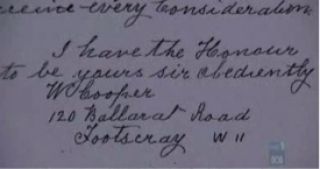 receive every Consideration
I have the Honour
to be yours sir obediently
W Cooper
120 Ballarat Road
Footscray W 11
abc